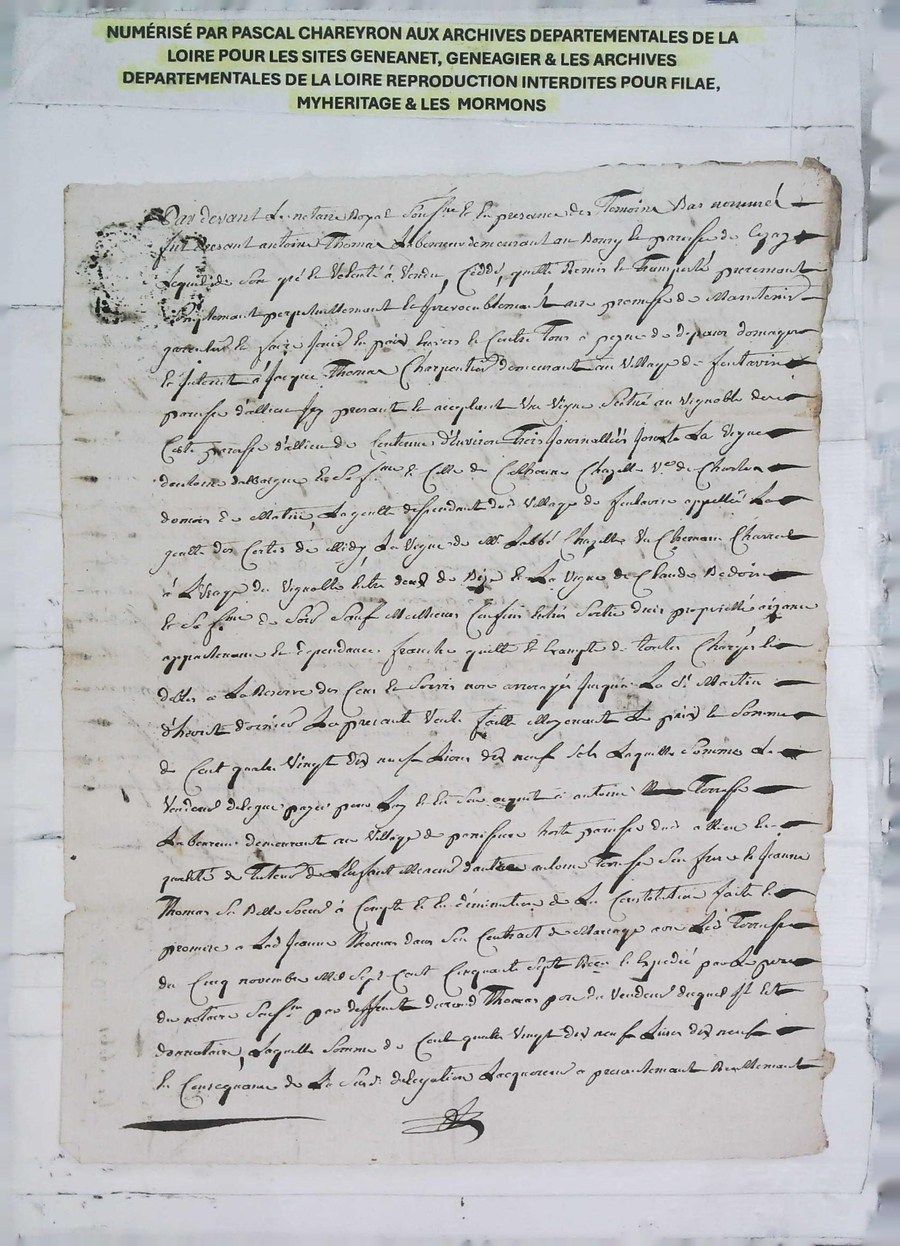 NUMÉRISÉ PAR PASCAL CHAREYRON AUX ARCHIVES DEPARTEMENTALES DE LA
LOIRE POUR LES SITES GENEANET, GENEAGIER & LES ARCHIVES
DEPARTEMENTALES DE LA LOIRE REPRODUCTION INTERDITES POUR FILAE,
MYHERITAGE & LES MORMONS
Par devant Le notaire Royal Sousne et En presance des Temoins Bas nommés
fut presant antoine Thomas Laboureur demeurant au Bourg et paroisse de
Lequel de Son gré et Volonté à Vendu, Ceddé, quitté Remis et Transporté purement
Simplement perpetuellement et Irrevocablement avec promesse de Maintenir
garentir et faire Jouir En paix Envers et Contre Tous à peyne de depans domages
et Interest à Jacque Thomas Charpentier demeurant au Village de fontavin
paroisse d'allieu Icy presant et acceptant Une Vigne Scitué au Vignoble de
Cette paroisse d'allieu de Contenue d'Environ Trois Journalliés Joute La Vigne
dantoine et Sa fme et Celle de Chazelle Vve de Charles
de Matin, Laquelle dependant dud Village de fontavin appellée La
des Cottes de Midy La Vigne de Mr Labbé Chazelle Un Chemain Charral
à L'Usage du Vignoble Entre deux de Bize et La Vigne de Claude
et Sa fme de Soir Sauf Meilleurs Confins Sortie droit proprietté aizance
appartenance et dependance franche quitte et Exempte de toutes Charges et
dettes a La Reserve des Cens et Servis non arreragés Jusqua La St Martin
d'hivert dernier La presante Vente faitte Moyenant Le prix et Somme
de Cent quatre Vingt dix neuf Livres dix neuf Sols Laquelle Somme Le
Vendeur delegue payer pour Luy et En Son acquit à antoine Terrasse
Laboureur demeurant au Village de paroisse dud allieu En
qualité de Tuteur de L'Enfant Mineur dautre antoine Terrasse Son frere et Jeanne
Thomas Sa Belle Soeur à Compte et En diminution de La Constitution faite et
promise a Lad Jeanne Thomas dans Son Contract de Mariage avec Led Terrasse
du Cinq novembre Mil Sept Cent Cinquante Sept Receu et Expedié par Le pere
du notaire Sousne par deffunt Thomas pere du Vendeur duquel Il Est
donnataire, Laquelle Somme de Cent quatre Vingt dix neuf Livres dix neuf
En Consequance de La Susd delegation Lacquereur a presantemant Reellemant